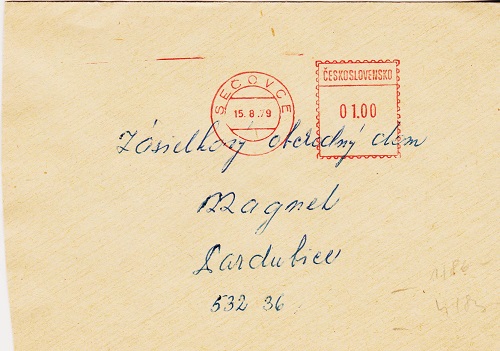 SEČOVCE
15.8.79
ČESKOSLOVENSKO
01.00
Zásielkový obchodný dom
Magnet
Pardubice
532 36
1/86